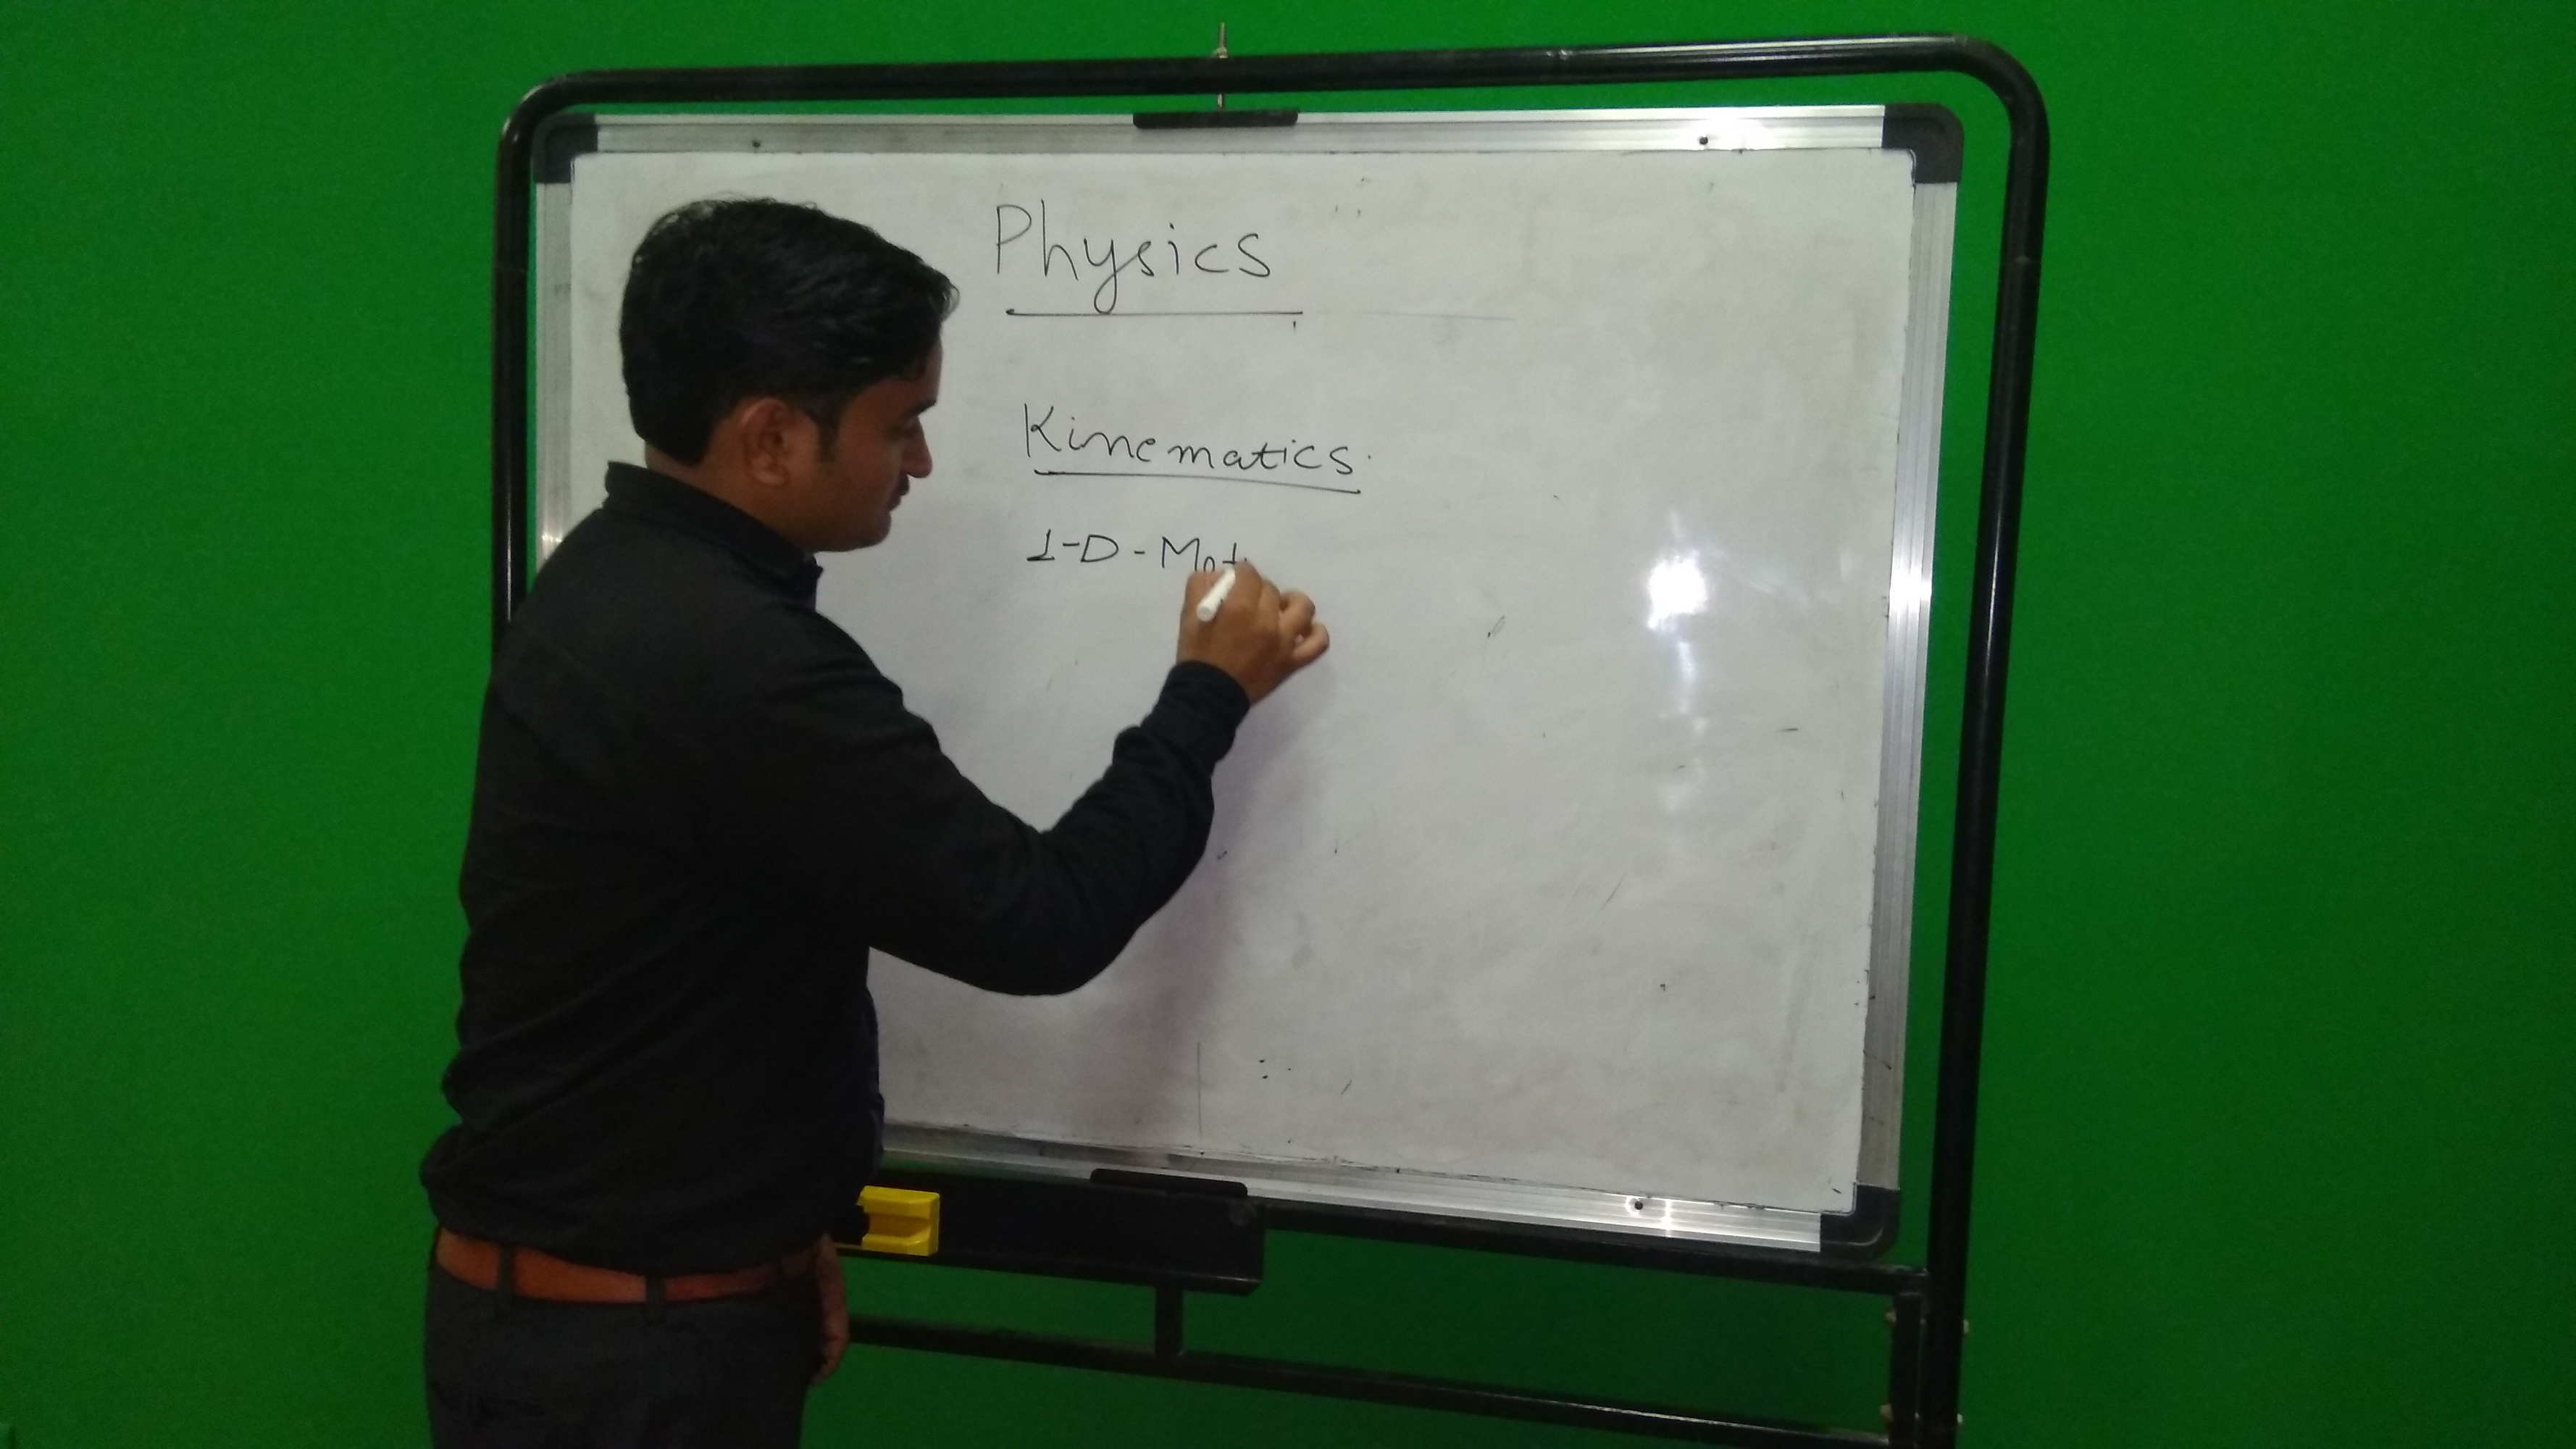 Physics
Kinematics
1-D-Mot